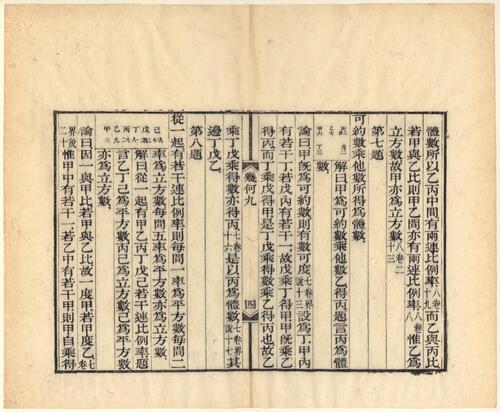 體數所以乙丙中間有兩連比例率八卷十九而乙與丙比
若甲與乙比則甲乙間亦有兩連比例率八卷八惟乙爲
立方數故甲亦爲立方數八卷二十三
第七題
可約數乘他數所得爲體數
解曰甲爲可約數乘他數乙得丙題言丙爲體
數
論曰甲旣爲可約數則有數可度七卷界說十三設爲丁甲內
有若干丁若戊內有若干一故戊乘丁得甲甲旣乘乙
得丙而丁乘戊得甲是丁戊乘得數乘乙得丙也故乙
幾何九
四
乘丁戊得數亦得丙七卷十六是以丙爲體數七卷界說十七其
邊丁戊乙
第八題
從一起有若干連比例率則每間一率爲平方數每間二
率爲立方數每間五率爲平方數亦爲立方數
解曰從一起有甲乙丙丁戊己若干連比例率題
言乙丁己爲平方數丙己爲立方數己爲平方數
亦爲立方數
論曰因一與甲比若甲與乙比故一度甲若甲度乙七卷
界說二十惟甲中有若干一若乙中有若干甲則甲自乘得